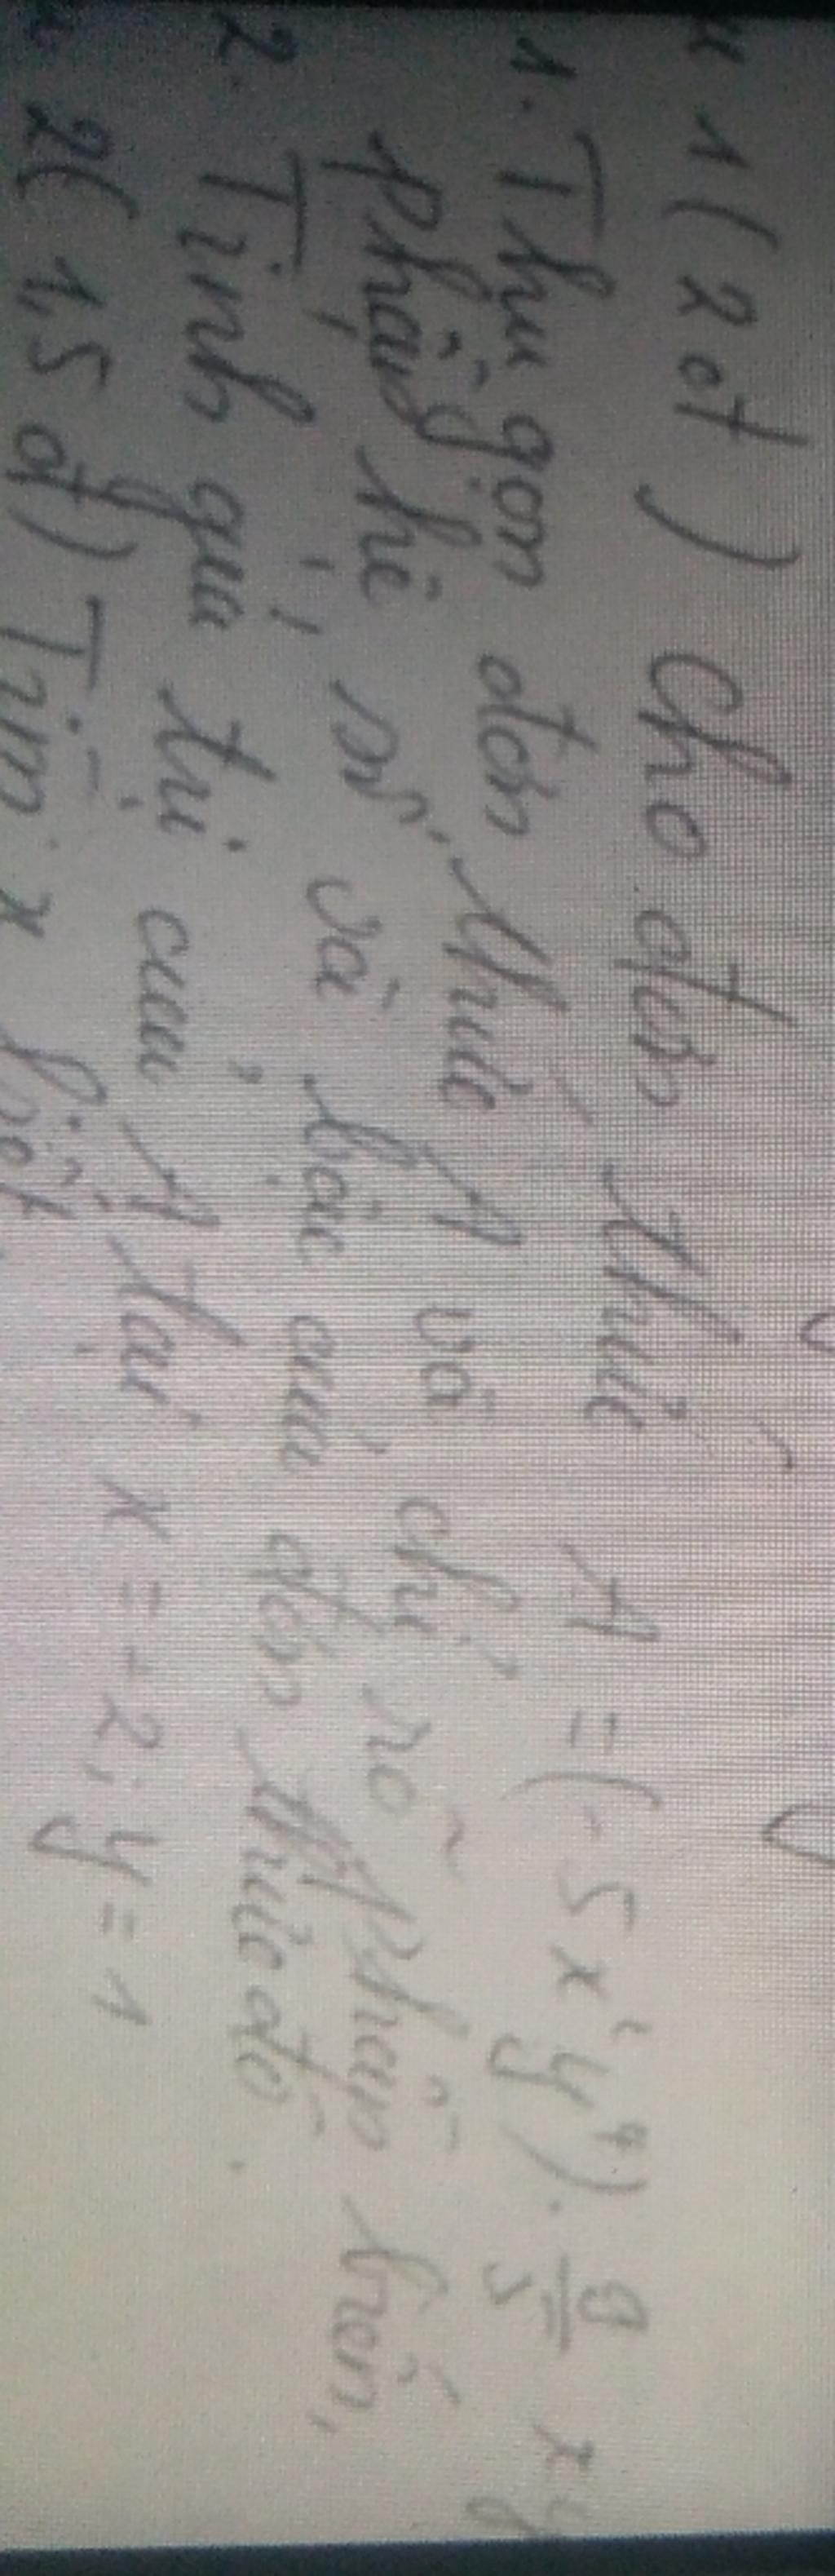 1 (2đ) Cho đơn thức A = (-5x²y⁴). 9/5 xy
1. Thu gọn đơn thức A và chỉ rõ phần biến,
phần hệ số và bậc của đơn thức đó.
2. Tính giá trị của A tại x = -2; y = 1
2 (1,5đ) Tìm x biết